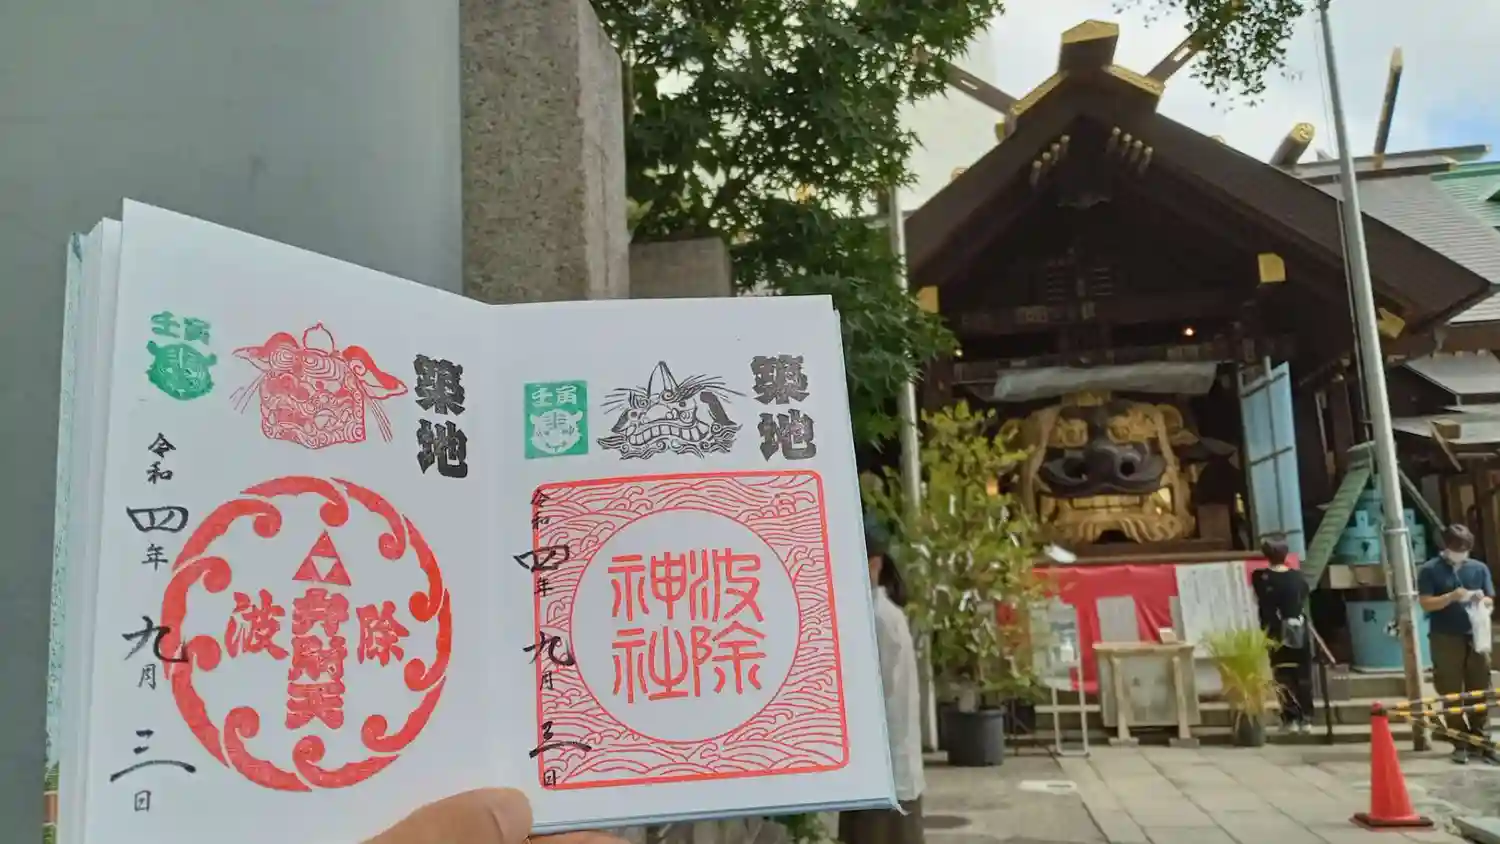 築地
壬寅
令和
四年
九月
三日
除
弁財天
波
築地
壬寅
令和
四年
九月
三日
波除
神社